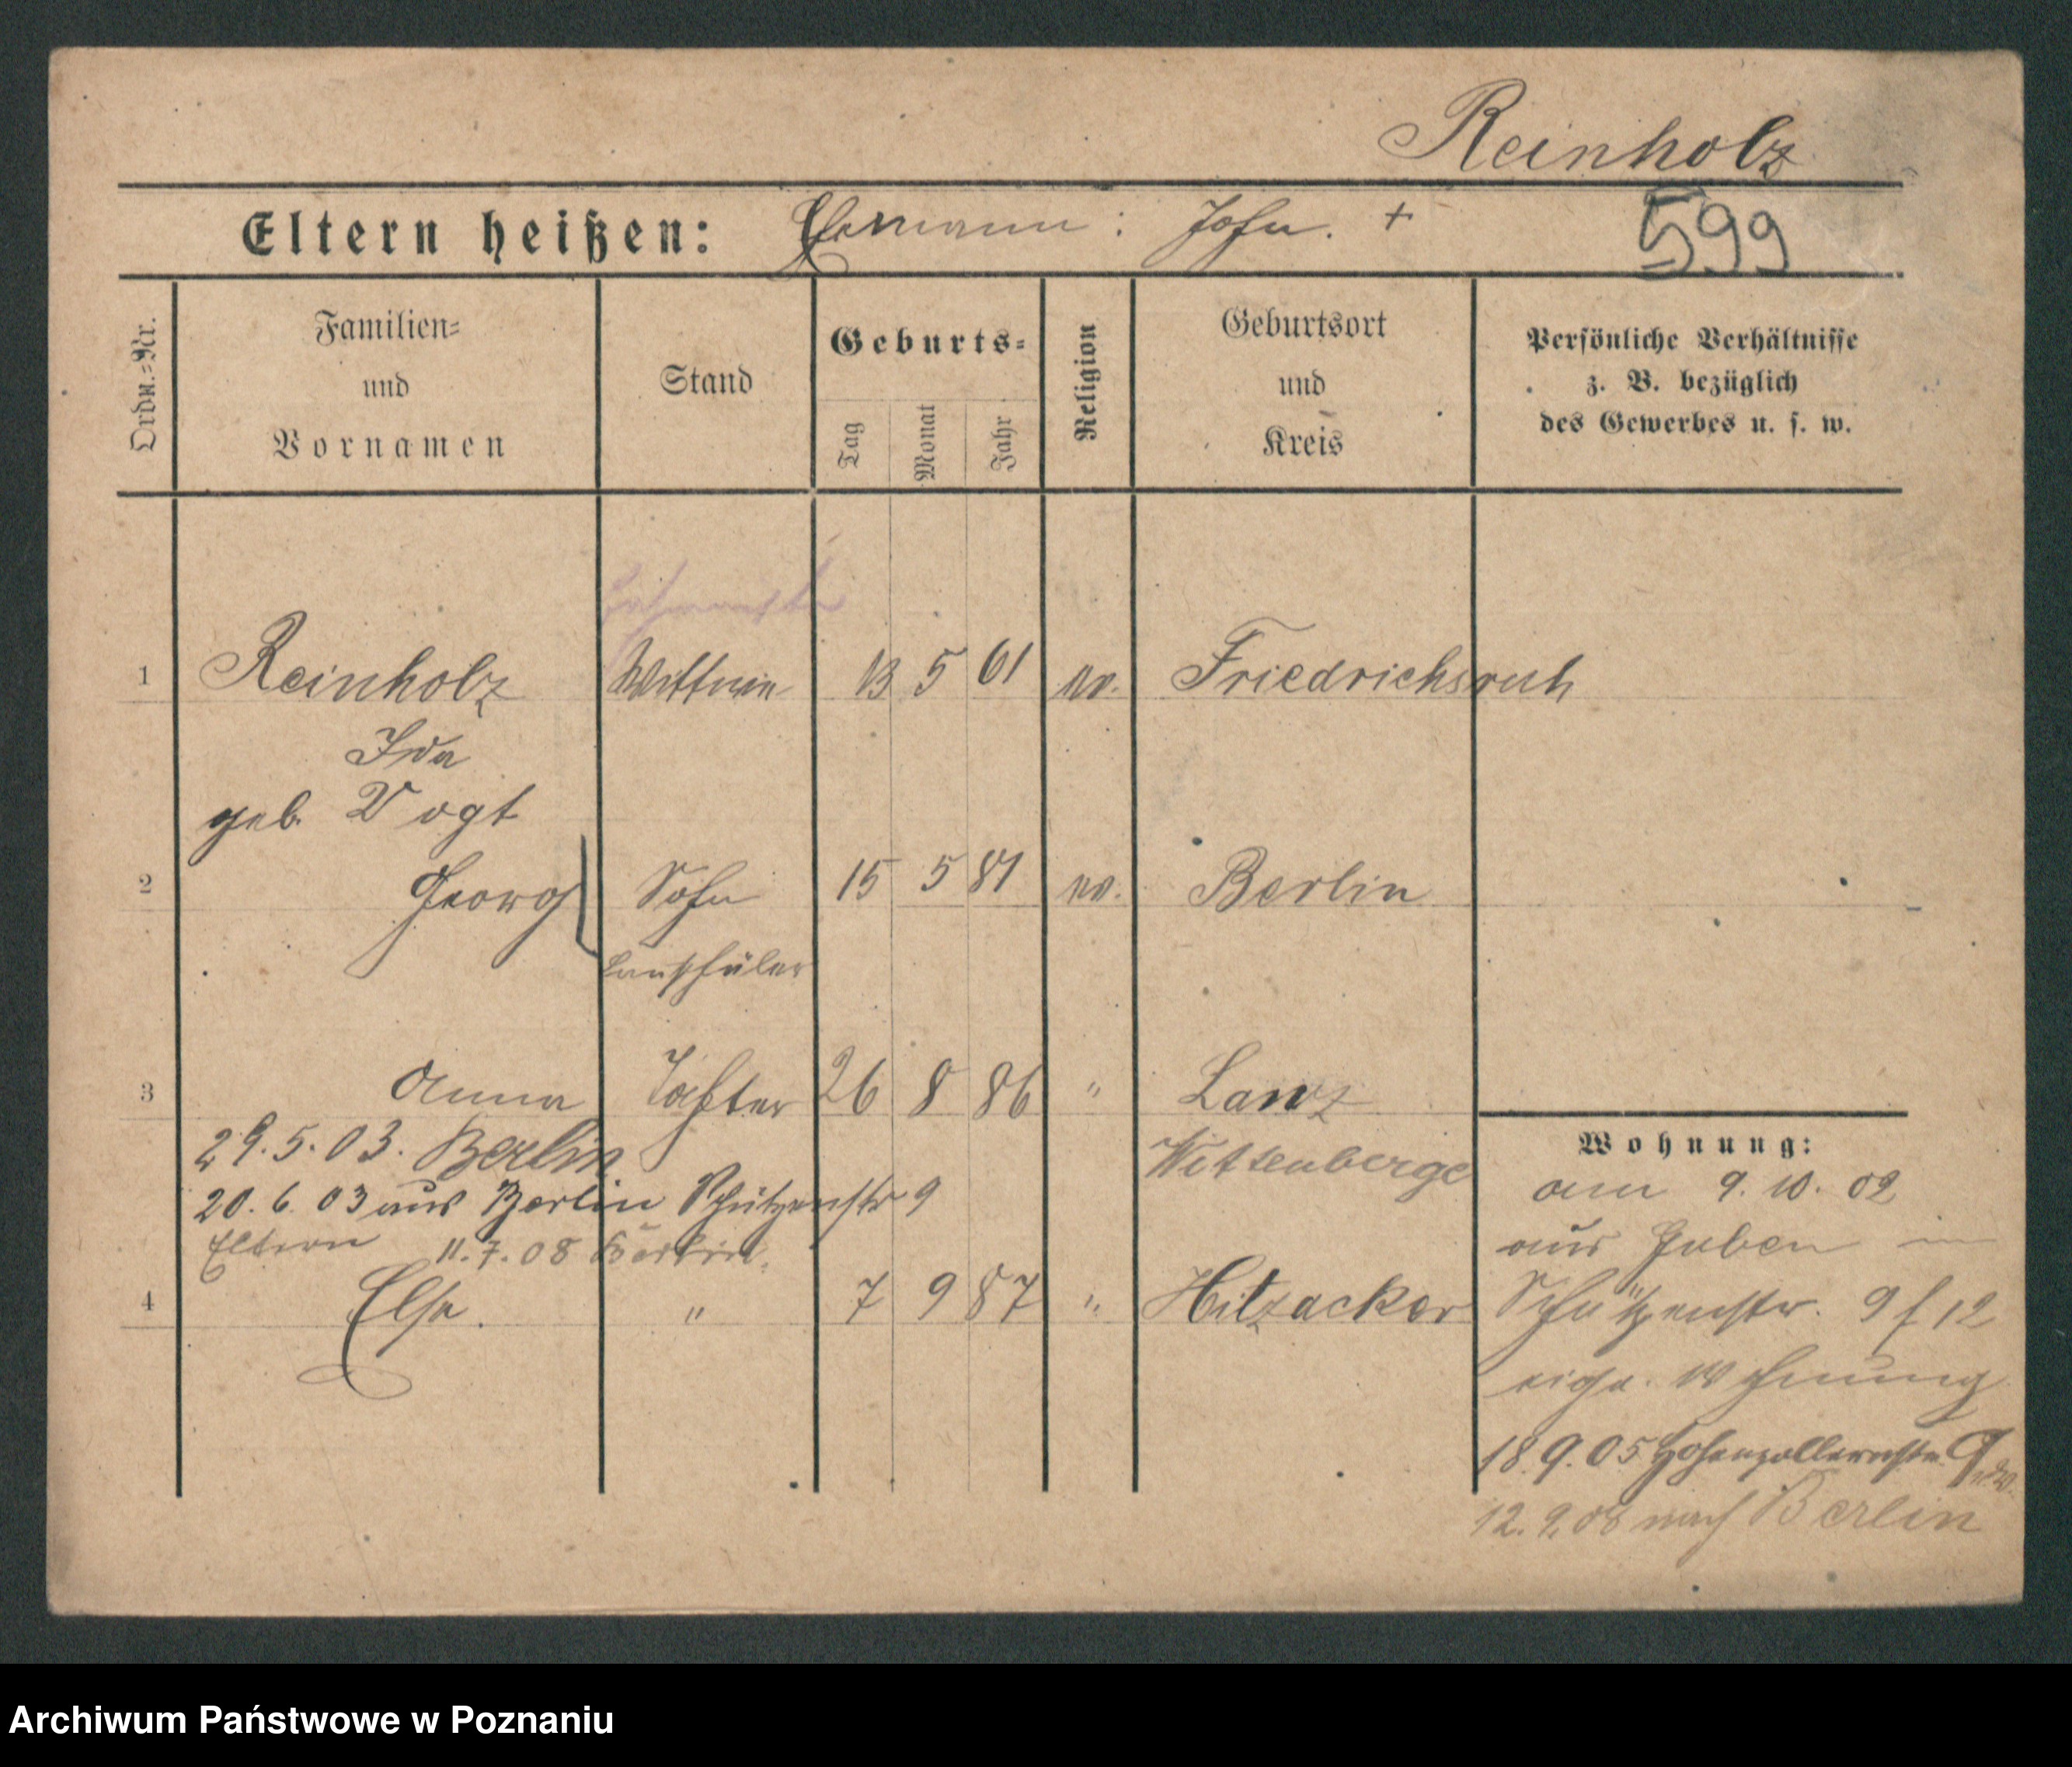 Reinholz
Eltern heißen: Hermann: Joh. +
599
Ordn.=Nr.
Familien=
und
Vornamen
Stand
Geburts=
Tag
Monat
Jahr
Religion
Geburtsort
und
Kreis
Persönliche Verhältnisse
z. B. bezüglich
des Gewerbes u. s. w.
1 Reinholz Wittwe 13 5 61 ev. Friedrichsruh
Ida
geb. Vogt
2 Georg Sohn 15 5 81 ev. Berlin
Bauschüler
3 Anna Tochter 26 8 86 " Lanz
Wittenberge
29.5.03. Berlin
20.6.03 aus Berlin Schützenstr 9
Eltern 11.7.08 Berlin.
4 Else. " 7 9 87 " Hitzacker
Wohnung:
am 9.10.02
aus Guben in
Schützenstr. 9 f 12
eige. Wohnung
18.9.05 Hohenzollernstr. 9
12.9.08 nach Berlin
Archiwum Państwowe w Poznaniu